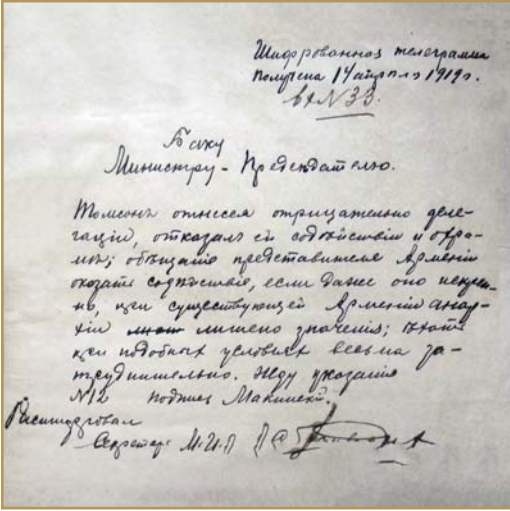 Шифрованная телеграмма
получена 14 апреля 1919 г.
вх №33.
Баку
Министру-Председателю.
Томсонъ отнесся отрицательно деле-
гаціи, отказалъ ей содѣйствіи и охра-
нѣ; обѣщаніе представителя Арменіи
оказать содѣйствіе, если даже оно искрен-
но, при существующей Арменіи анар-
хіи лишено значенія; ѣхать
при подобныхъ условіяхъ весьма за-
труднительно. Жду указанія
№12 подпись Макинскій.
Расшифровалъ
Секретарь М.И.Д.